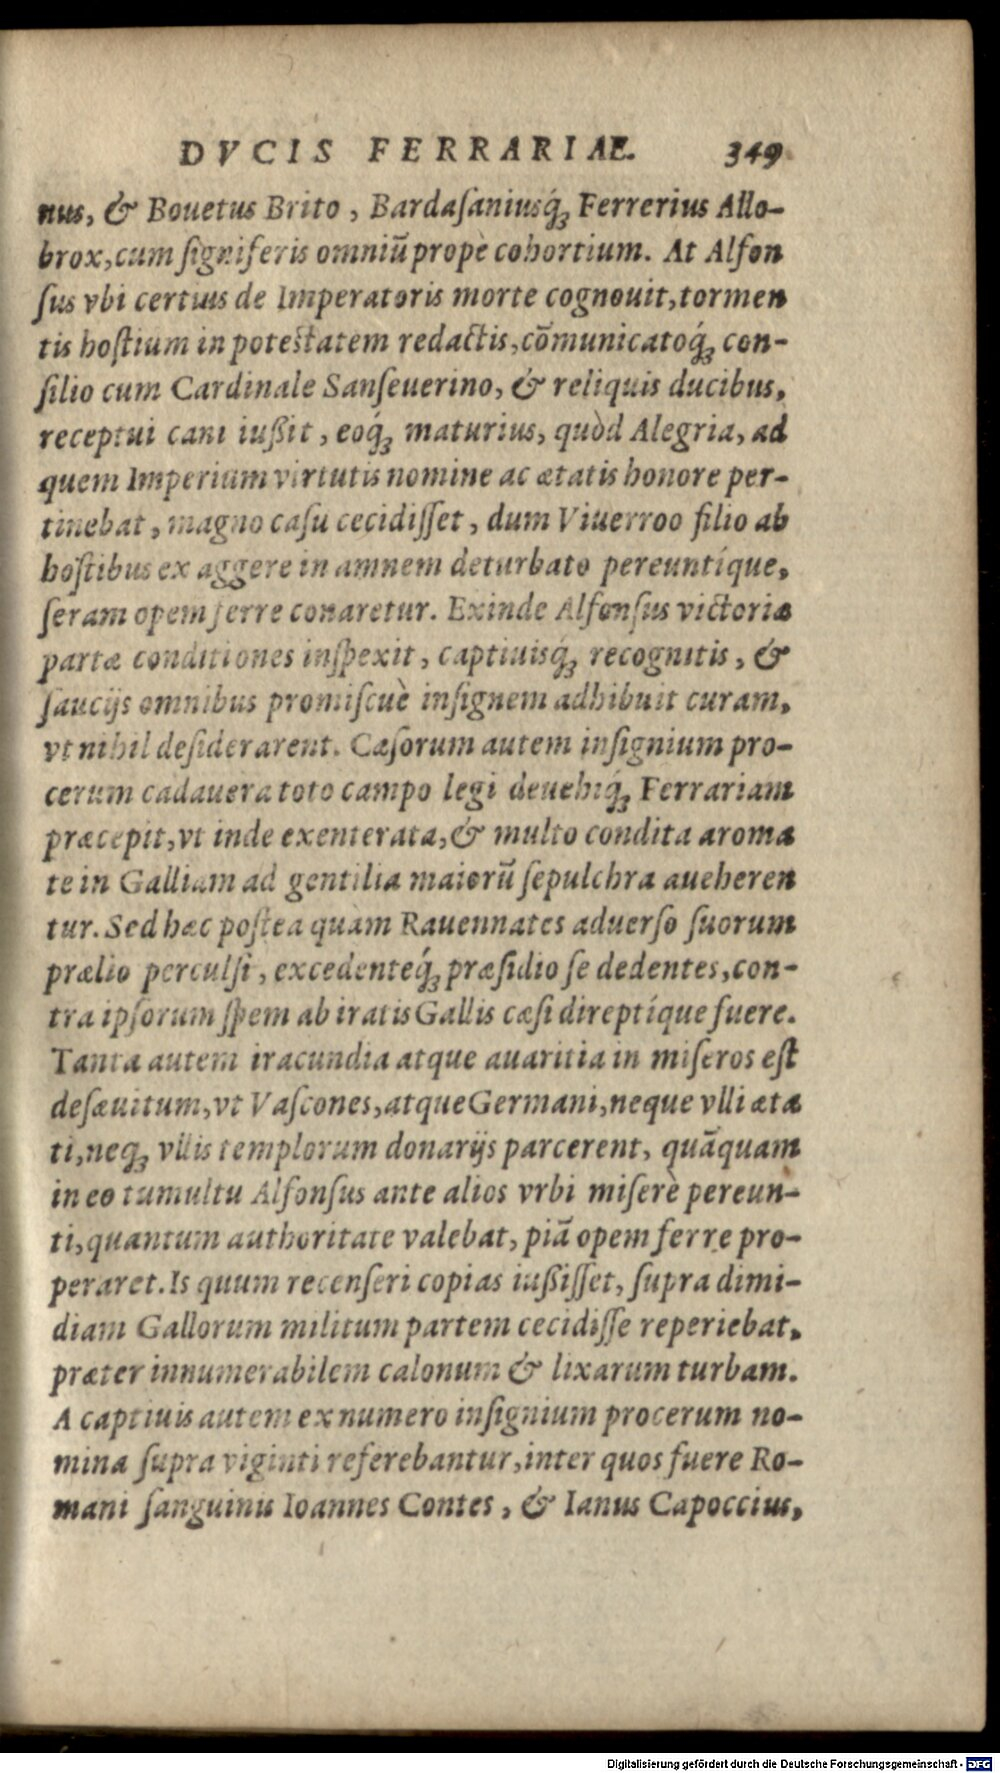 DVCIS FERRARIAE. 349
nus, & Bouetus Brito, Bardaſaniusq́ꝫ Ferrerius Allo-
brox, cum ſigniferis omniũ propè cohortium. At Alfon
ſus vbi certius de Imperatoris morte cognouit, tormen
tis hoſtium in poteſtatem redactis, cõmunicatoq́ꝫ con-
ſilio cum Cardinale Sanſeuerino, & reliquis ducibus,
receptui cani iußit, eoq́ꝫ maturius, quòd Alegria, ad
quem Imperium virtutis nomine ac ætatis honore per-
tinebat, magno caſu cecidiſſet, dum Viuerroo filio ab
hoſtibus ex aggere in amnem deturbato pereuntíque,
ſeram opem ferre conaretur. Exinde Alfonſus victoriæ
partæ conditiones inſpexit, captiuisq́ꝫ recognitis, &
ſaucijs omnibus promiſcuè inſignem adhibuit curam,
vt nihil deſiderarent. Cæſorum autem inſignium pro-
cerum cadauera toto campo legi deuehiq́ꝫ Ferrariam
præcepit, vt inde exenterata, & multo condita aroma
te in Galliam ad gentilia maiorũ ſepulchra aueheren
tur. Sed hæc poſtea quàm Rauennates aduerſo ſuorum
prælio perculſi, excedenteq́ꝫ præſidio ſe dedentes, con-
tra ipſorum ſpem ab iratis Gallis cæſi direptíque fuere.
Tanta autem iracundia atque auaritia in miſeros eſt
deſæuitum, vt Vaſcones, atque Germani, neque vlli ætа
ti, neqꝫ vllis templorum donarijs parcerent, quãquam
in eo tumultu Alfonſus ante alios vrbi miſerè pereun-
ti, quantum authoritate valebat, piã opem ferre pro-
peraret. Is quum recenſeri copias iußiſſet, ſupra dimi-
diam Gallorum militum partem cecidiſſe reperiebat,
præter innumerabilem calonum & lixarum turbam.
A captiuis autem ex numero inſignium procerum no-
mina ſupra viginti referebantur, inter quos fuere Ro-
mani ſanguinis Ioannes Contes, & Ianus Capoccius,
Digitalisierung gefördert durch die Deutsche Forschungsgemeinschaft - DFG